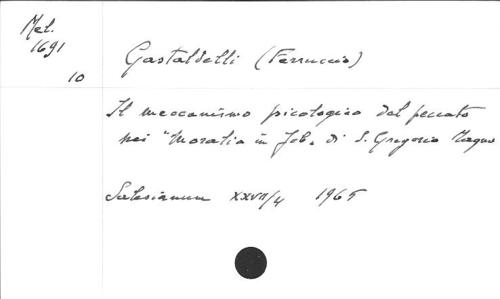 Mel.
1691
10
Gastaldelli (Ferruccio)
Il meccanismo psicologico del peccato
nei "Moralia in Job" di S. Gregorio Magno
Salesianum XXVII/4 1965